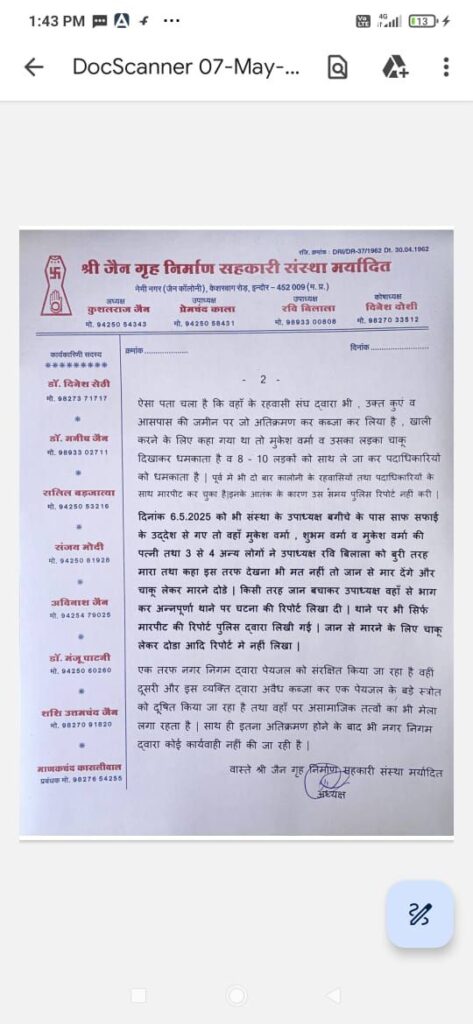 1:43 PM
4G
13
DocScanner 07-May-...
रजि. क्रमांक : DR/DR-37/1962 Dt. 30.04.1962
श्री जैन गृह निर्माण सहकारी संस्था मर्यादित
नेमी नगर (जैन कॉलोनी), केशरबाग रोड़, इन्दौर – 452 009 (म. प्र.)
अध्यक्ष
कुशलराज जैन
मो. 94250 54343
उपाध्यक्ष
प्रेमचंद काला
मो. 94250 58431
उपाध्यक्ष
रवि बिलाला
मो. 98933 00808
कोषाध्यक्ष
दिनेश दोशी
मो. 98270 33512
कार्यकारिणी सदस्य
*********
डॉ. दिनेश सेठी
मो. 98273 71717
डॉ. मनीष जैन
मो. 98933 02711
सलिल बड़जात्या
मो. 94250 53216
संजय मोदी
मो. 94250 81928
अविनाश जैन
मो. 94254 79025
डॉ. मंजू पाटनी
मो. 94250 60260
शशि उत्तमचंद जैन
मो. 98270 91820
माणकचंद कासलीवाल
प्रबंधक मो. 98276 54255
क्रमांक.................
दिनांक......................
- 2 -
ऐसा पता चला है कि वहाँ के रहवासी संघ द्वारा भी , उक्त कुएं व
आसपास की जमीन पर जो अतिक्रमण कर कब्जा कर लिया है , खाली
करने के लिए कहा गया था तो मुकेश वर्मा व उसका लड़का चाकू
दिखाकर धमकाता है व 8 - 10 लड़कों को साथ ले जा कर पदाधिकारियों
को धमकाता है | पूर्व मे भी दो बार कालोनी के रहवासियों तथा पदाधिकारियों के
साथ मारपीट कर चुका है|इनके आतंक के कारण उस समय पुलिस रिपोर्ट नही करी |
दिनांक 6.5.2025 को भी संस्था के उपाध्यक्ष बगीचे के पास साफ सफाई
के उद्देश से गए तो वहाँ मुकेश वर्मा , शुभम वर्मा व मुकेश वर्मा की
पत्नी तथा 3 से 4 अन्य लोगों ने उपाध्यक्ष रवि बिलाला को बुरी तरह
मारा तथा कहा इस तरफ देखना भी मत नहीं तो जान से मार देंगे और
चाकू लेकर मारने दोडे | किसी तरह जान बचाकर उपाध्यक्ष वहाँ से भाग
कर अन्नपूर्णा थाने पर घटना की रिपोर्ट लिखा दी | थाने पर भी सिर्फ
मारपीट की रिपोर्ट पुलिस द्वारा लिखी गई | जान से मारने के लिए चाकू
लेकर दोडा आदि रिपोर्ट मे नहीं लिखा |
एक तरफ नगर निगम द्वारा पेयजल को संरक्षित किया जा रहा है वही
दूसरी और इस व्यक्ति द्वारा अवैध कब्जा कर एक पेयजल के बड़े स्त्रोत
को दूषित किया जा रहा है तथा वहाँ पर असामाजिक तत्वों का भी मेला
लगा रहता है | साथ ही इतना अतिक्रमण होने के बाद भी नगर निगम
द्वारा कोई कार्यवाही नहीं की जा रही है |
वास्ते श्री जैन गृह निर्माण सहकारी संस्था मर्यादित
अध्यक्ष